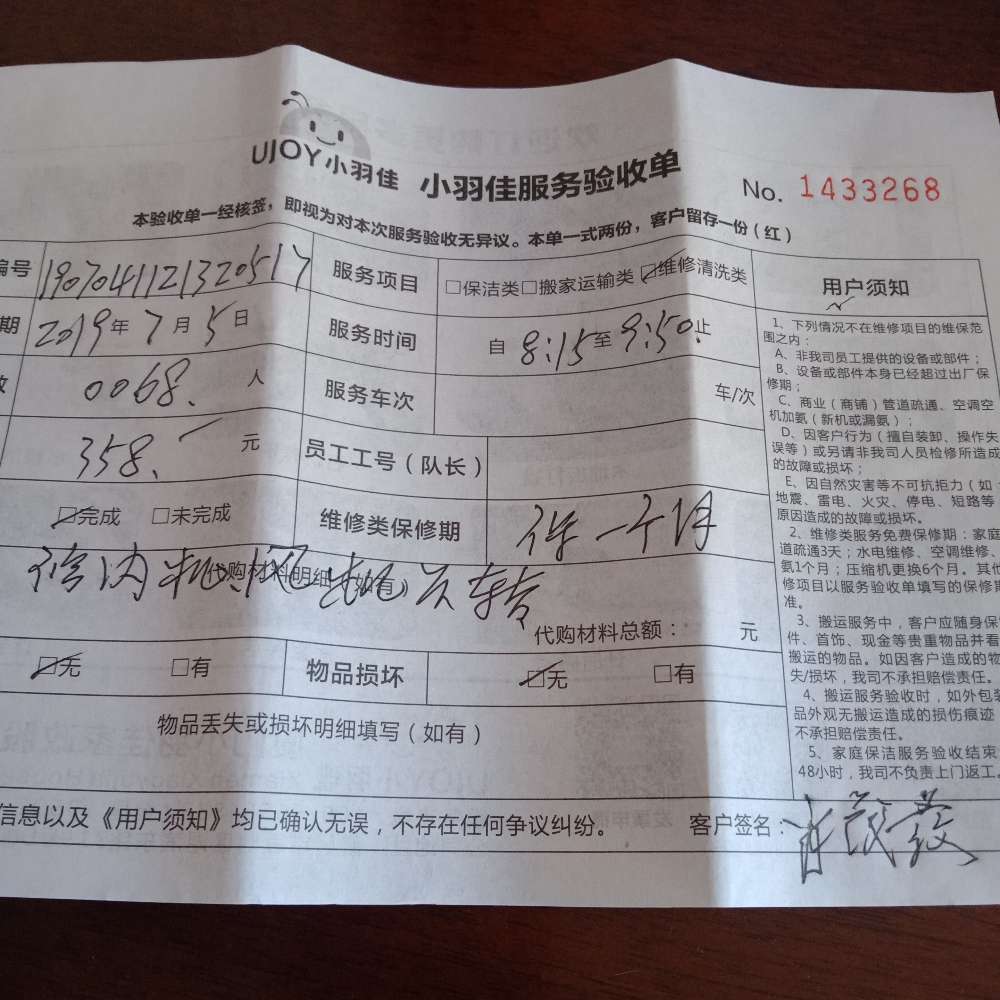 UJOY小羽佳 小羽佳服务验收单 No. 1433268
本验收单一经核签，即视为对本次服务验收无异议。本单一式两份，客户留存一份（红）
编号 1907041121320517 服务项目 □保洁类□搬家运输类☑维修清洗类
期 2019年7月5日 服务时间 自8:15至9:50止
0068. 人 服务车次 车/次
358. 元 员工工号（队长）
☑完成 □未完成 维修类保修期 保一个月
代购材料明细（如有）
修内机,风机不转
代购材料总额： 元
☑无 □有 物品损坏 ☑无 □有
物品丢失或损坏明细填写（如有）
信息以及《用户须知》均已确认无误，不存在任何争议纠纷。 客户签名：
用户须知
1、下列情况不在维修项目的维保范
围之内：
A、非我司员工提供的设备或部件；
B、设备或部件本身已经超过出厂保
修期；
C、商业（商铺）管道疏通、空调空
机加氨（新机或漏氨）；
D、因客户行为（擅自装卸、操作失
误等）或另请非我司人员检修所造成
的故障或损坏；
E、因自然灾害等不可抗拒力（如
地震、雷电、火灾、停电、短路等
原因造成的故障或损坏。
2、维修类服务免费保修期：家庭
道疏通3天；水电维修、空调维修、
氨1个月；压缩机更换6个月。其他
修项目以服务验收单填写的保修期
准。
3、搬运服务中，客户应随身保
件、首饰、现金等贵重物品并看
搬运的物品。如因客户造成的物
失/损坏，我司不承担赔偿责任。
4、搬运服务验收时，如外包装
品外观无搬运造成的损伤痕迹
不承担赔偿责任。
5、家庭保洁服务验收结束
48小时，我司不负责上门返工。